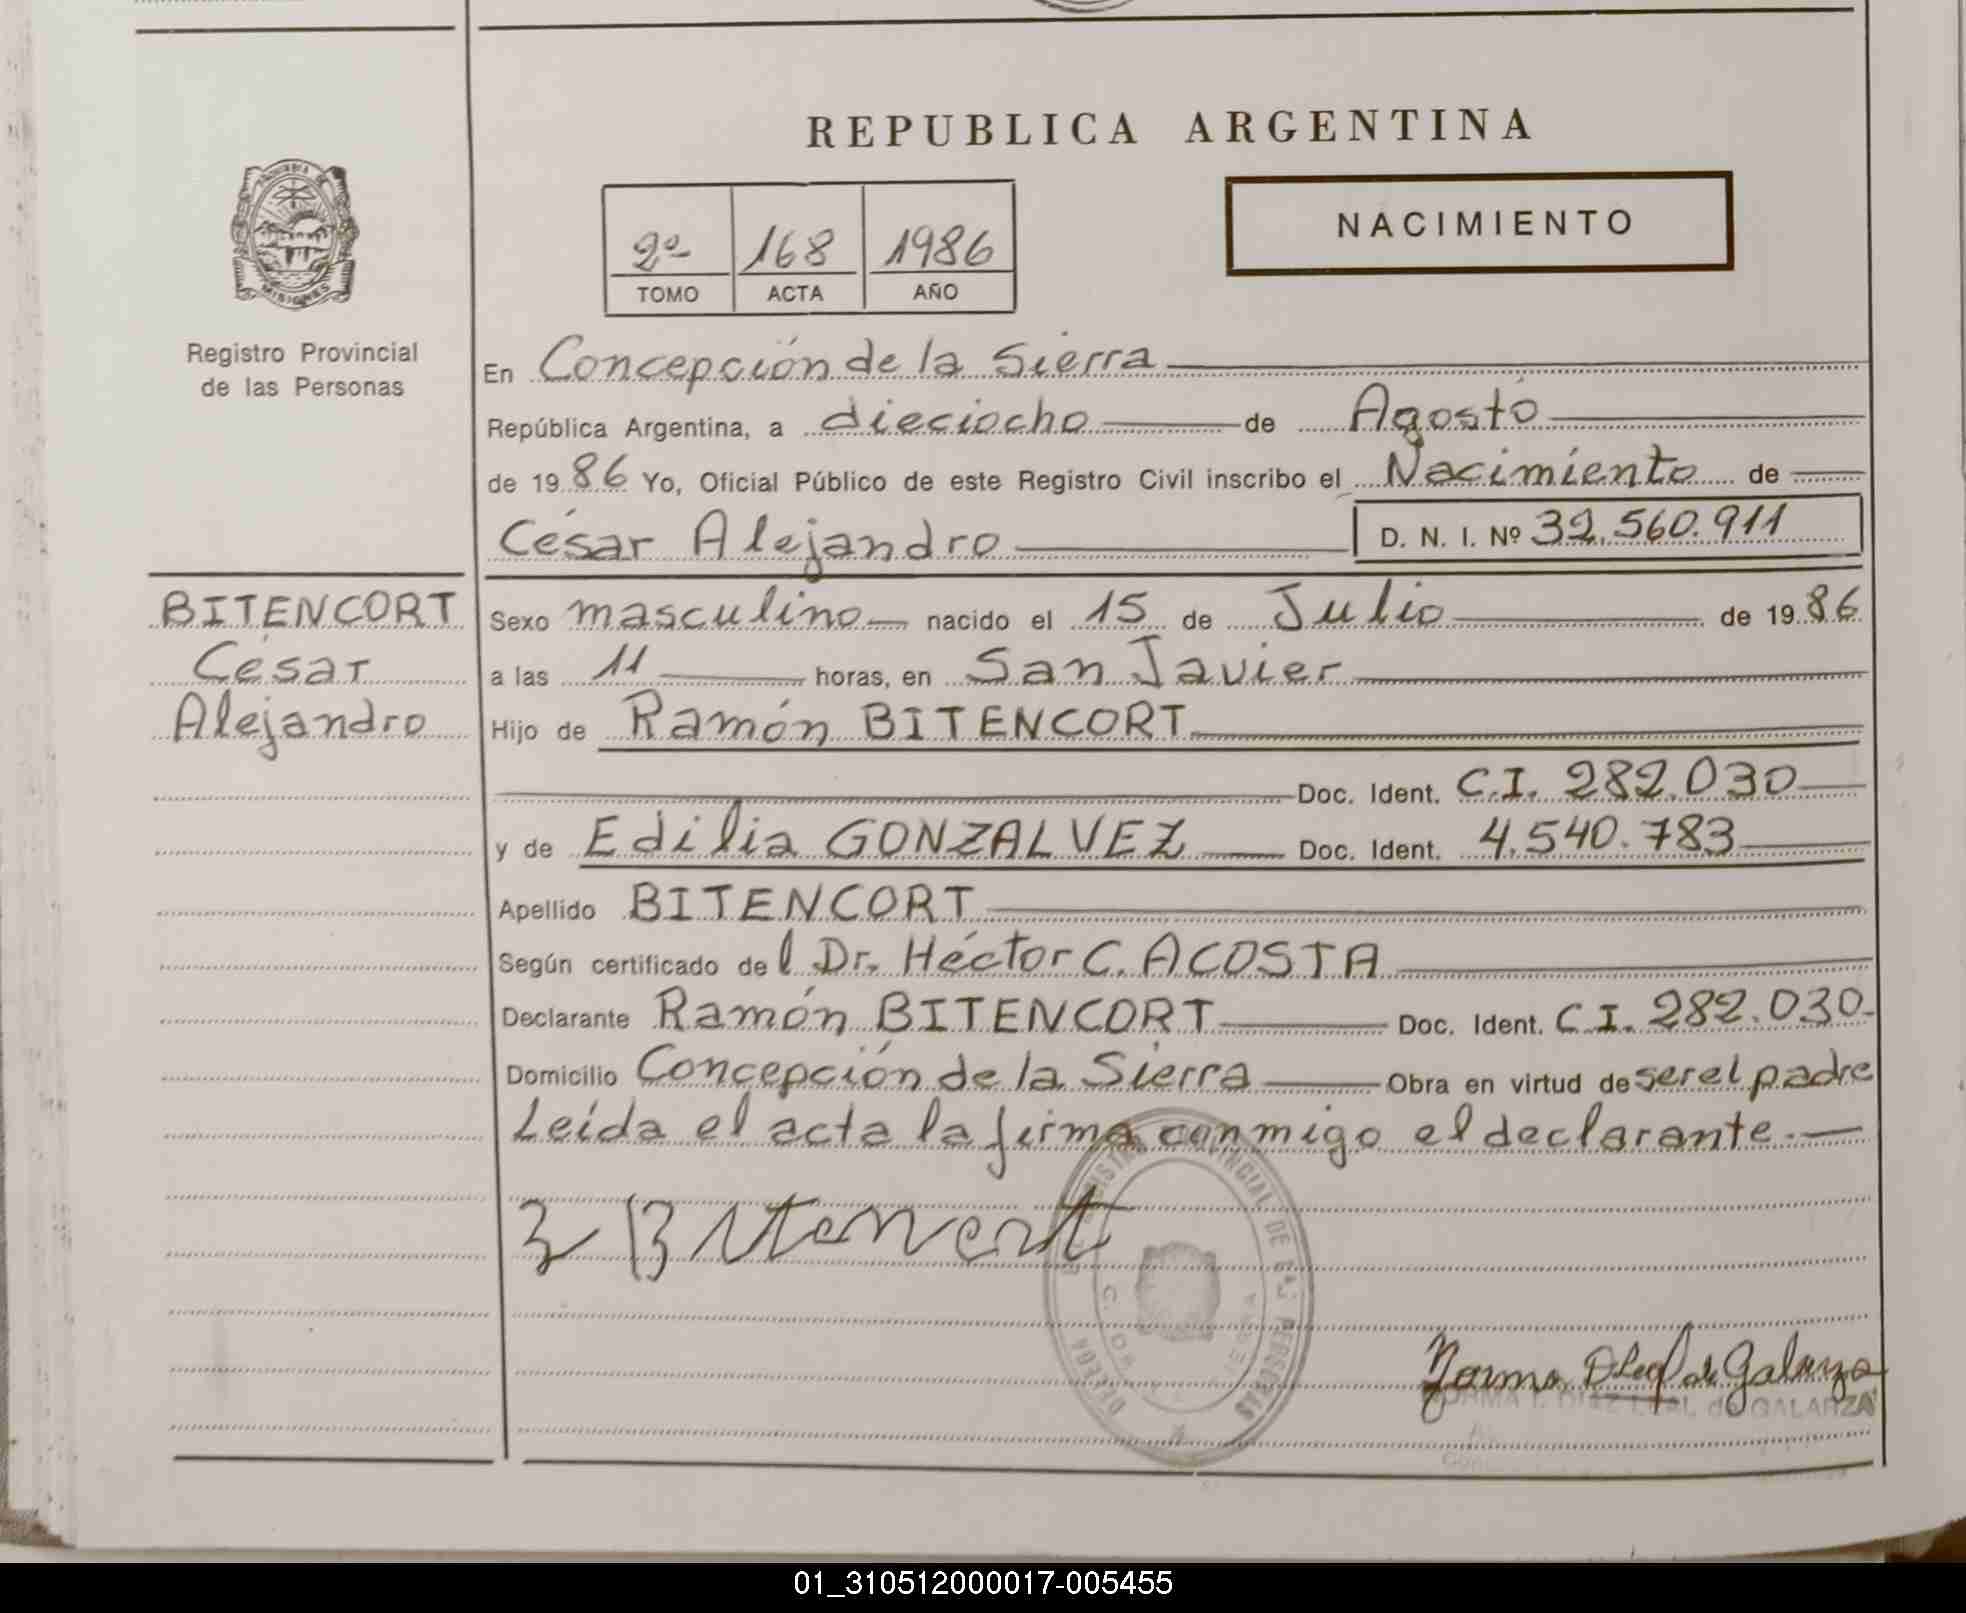 REPUBLICA ARGENTINA
NACIMIENTO
2º 168 1986
TOMO ACTA AÑO
MISIONES
Registro Provincial
de las Personas
En Concepción de la Sierra
República Argentina, a dieciocho de Agosto
de 1986 Yo, Oficial Público de este Registro Civil inscribo el Nacimiento de
César Alejandro D. N. I. Nº 32.560.911
BITENCORT
César
Alejandro
Sexo masculino nacido el 15 de Julio de 1986
a las 11 horas, en San Javier
Hijo de Ramón BITENCORT
Doc. Ident. C.I. 282.030
y de Edilia GONZALVEZ Doc. Ident. 4.540.783
Apellido BITENCORT
Según certificado del Dr. Héctor C. ACOSTA
Declarante Ramón BITENCORT Doc. Ident. C.I. 282.030
Domicilio Concepción de la Sierra Obra en virtud de ser el padre
Leída el acta la firma conmigo el declarante.
PROVINCIAL DE LAS PERSONAS
Norma de Galarza
NORMA I. DIAZ LEAL de GALARZA
01_310512000017-005455